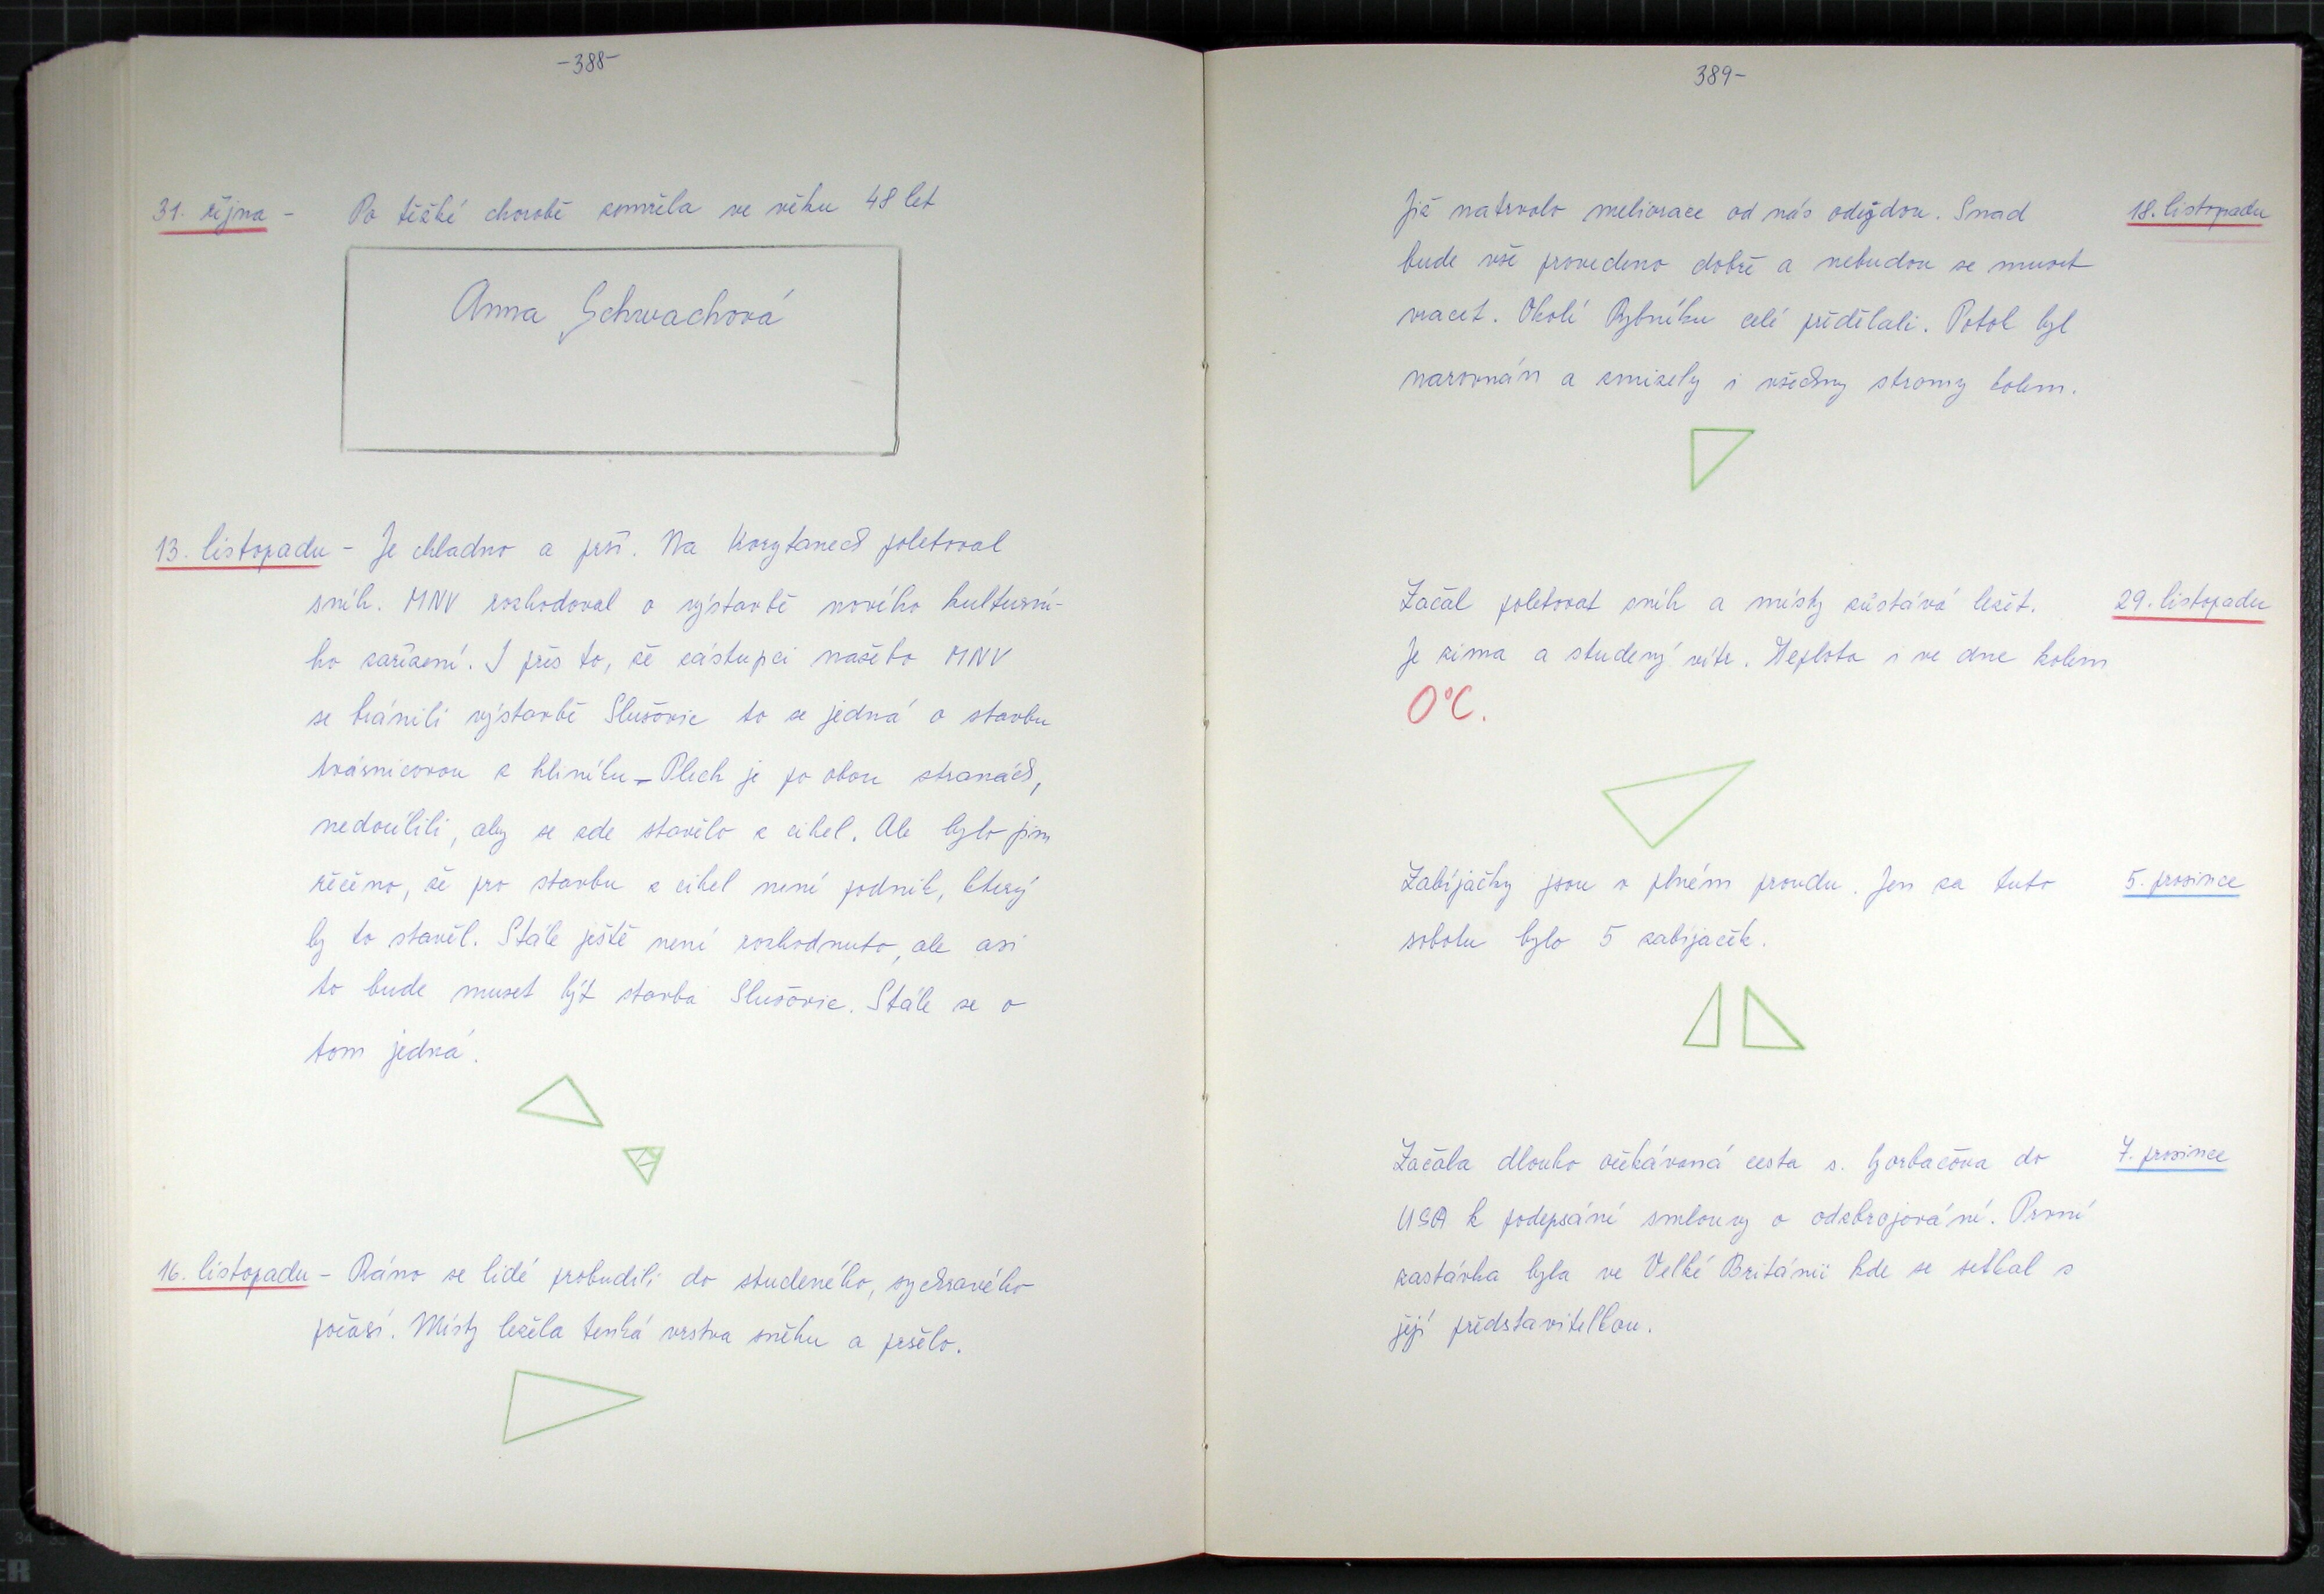 -388-
31. října - Po těžké chorobě zemřela ve věku 48 let
Anna Schwachová
13. listopadu - Je chladno a prší. Na Korytanech poletoval
sníh. MNV rozhodoval o výstavbě nového kulturní-
ho zařízení. I přes to, že zástupci našeho MNV
se bránili výstavbě Slušovic to se jedná o stavbu
tvárnicovou z hliníku - Plech je po obou stranách,
nedoúfilili, aby se zde stavělo z cihel. Ale bylo jim
řečeno, že pro stavbu z cihel není podnik, který
by to stavěl. Stále ještě není rozhodnuto, ale asi
to bude muset být stavba Slušovic. Stále se o
tom jedná.
16. listopadu - Ráno se lidé probudili do studeného, sychravého
počasí. Místy ležela tenká vrstva sněhu a pršelo.
389-
Již natrvalo meliorace od nás odejdou. Snad 18. listopadu
bude vše provedeno dobře a nebudou se muset
vracet. Okolí Rybníku celé předělali. Potok byl
narovnán a zmizely i všechny stromy kolem.
Začal poletovat sníh a místy zůstává ležet. 29. listopadu
Je zima a studený vítr. Teplota i ve dne kolem
0°C.
Zabíjačky jsou v plném proudu. Jen za tuto 5. prosince
sobotu bylo 5 zabíjaček.
Začala dlouho očekávaná cesta s. Gorbačova do 7. prosince
USA k podepsání smlouvy o odzbrojování. První
zastávka byla ve Velké Británii kde se setkal s
její představitelkou.